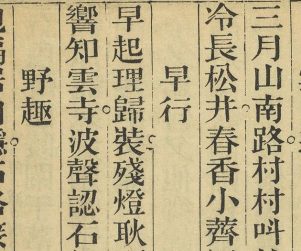 三月山南路村村叫
冷長松井春香小薺
早行
早起理歸裝殘燈耿
響知雲寺波聲認石
野趣